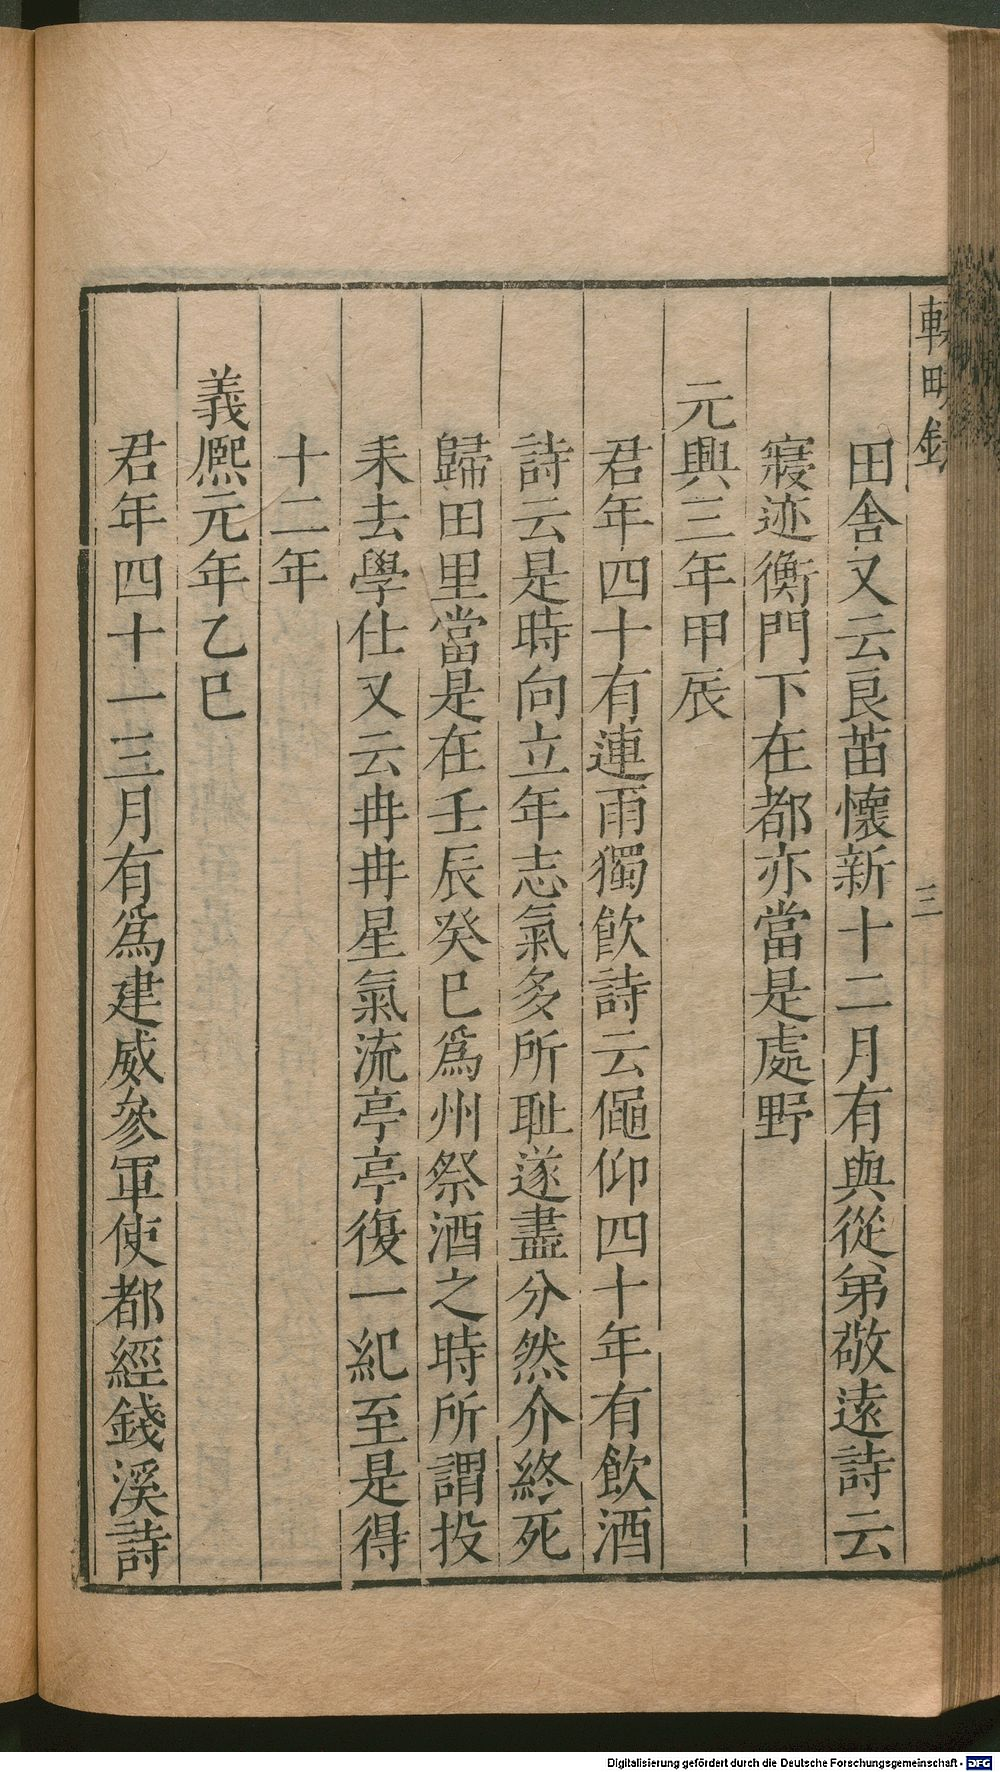 田舍又云良苗懷新十二月有與從弟敬遠詩云
寢迹衡門下在都亦當是處野
元興三年甲辰
君年四十有連雨獨飲詩云僶仰四十年有飲酒
詩云是時向立年志氣多所耻遂盡分然介終死
歸田里當是在壬辰癸巳爲州祭酒之時所謂投
耒去學仕又云冉冉星氣流亭亭復一紀至是得
十二年
義熙元年乙巳
君年四十一三月有爲建威參軍使都經錢溪詩
三
Digitalisierung gefördert durch die Deutsche Forschungsgemeinschaft - DFG